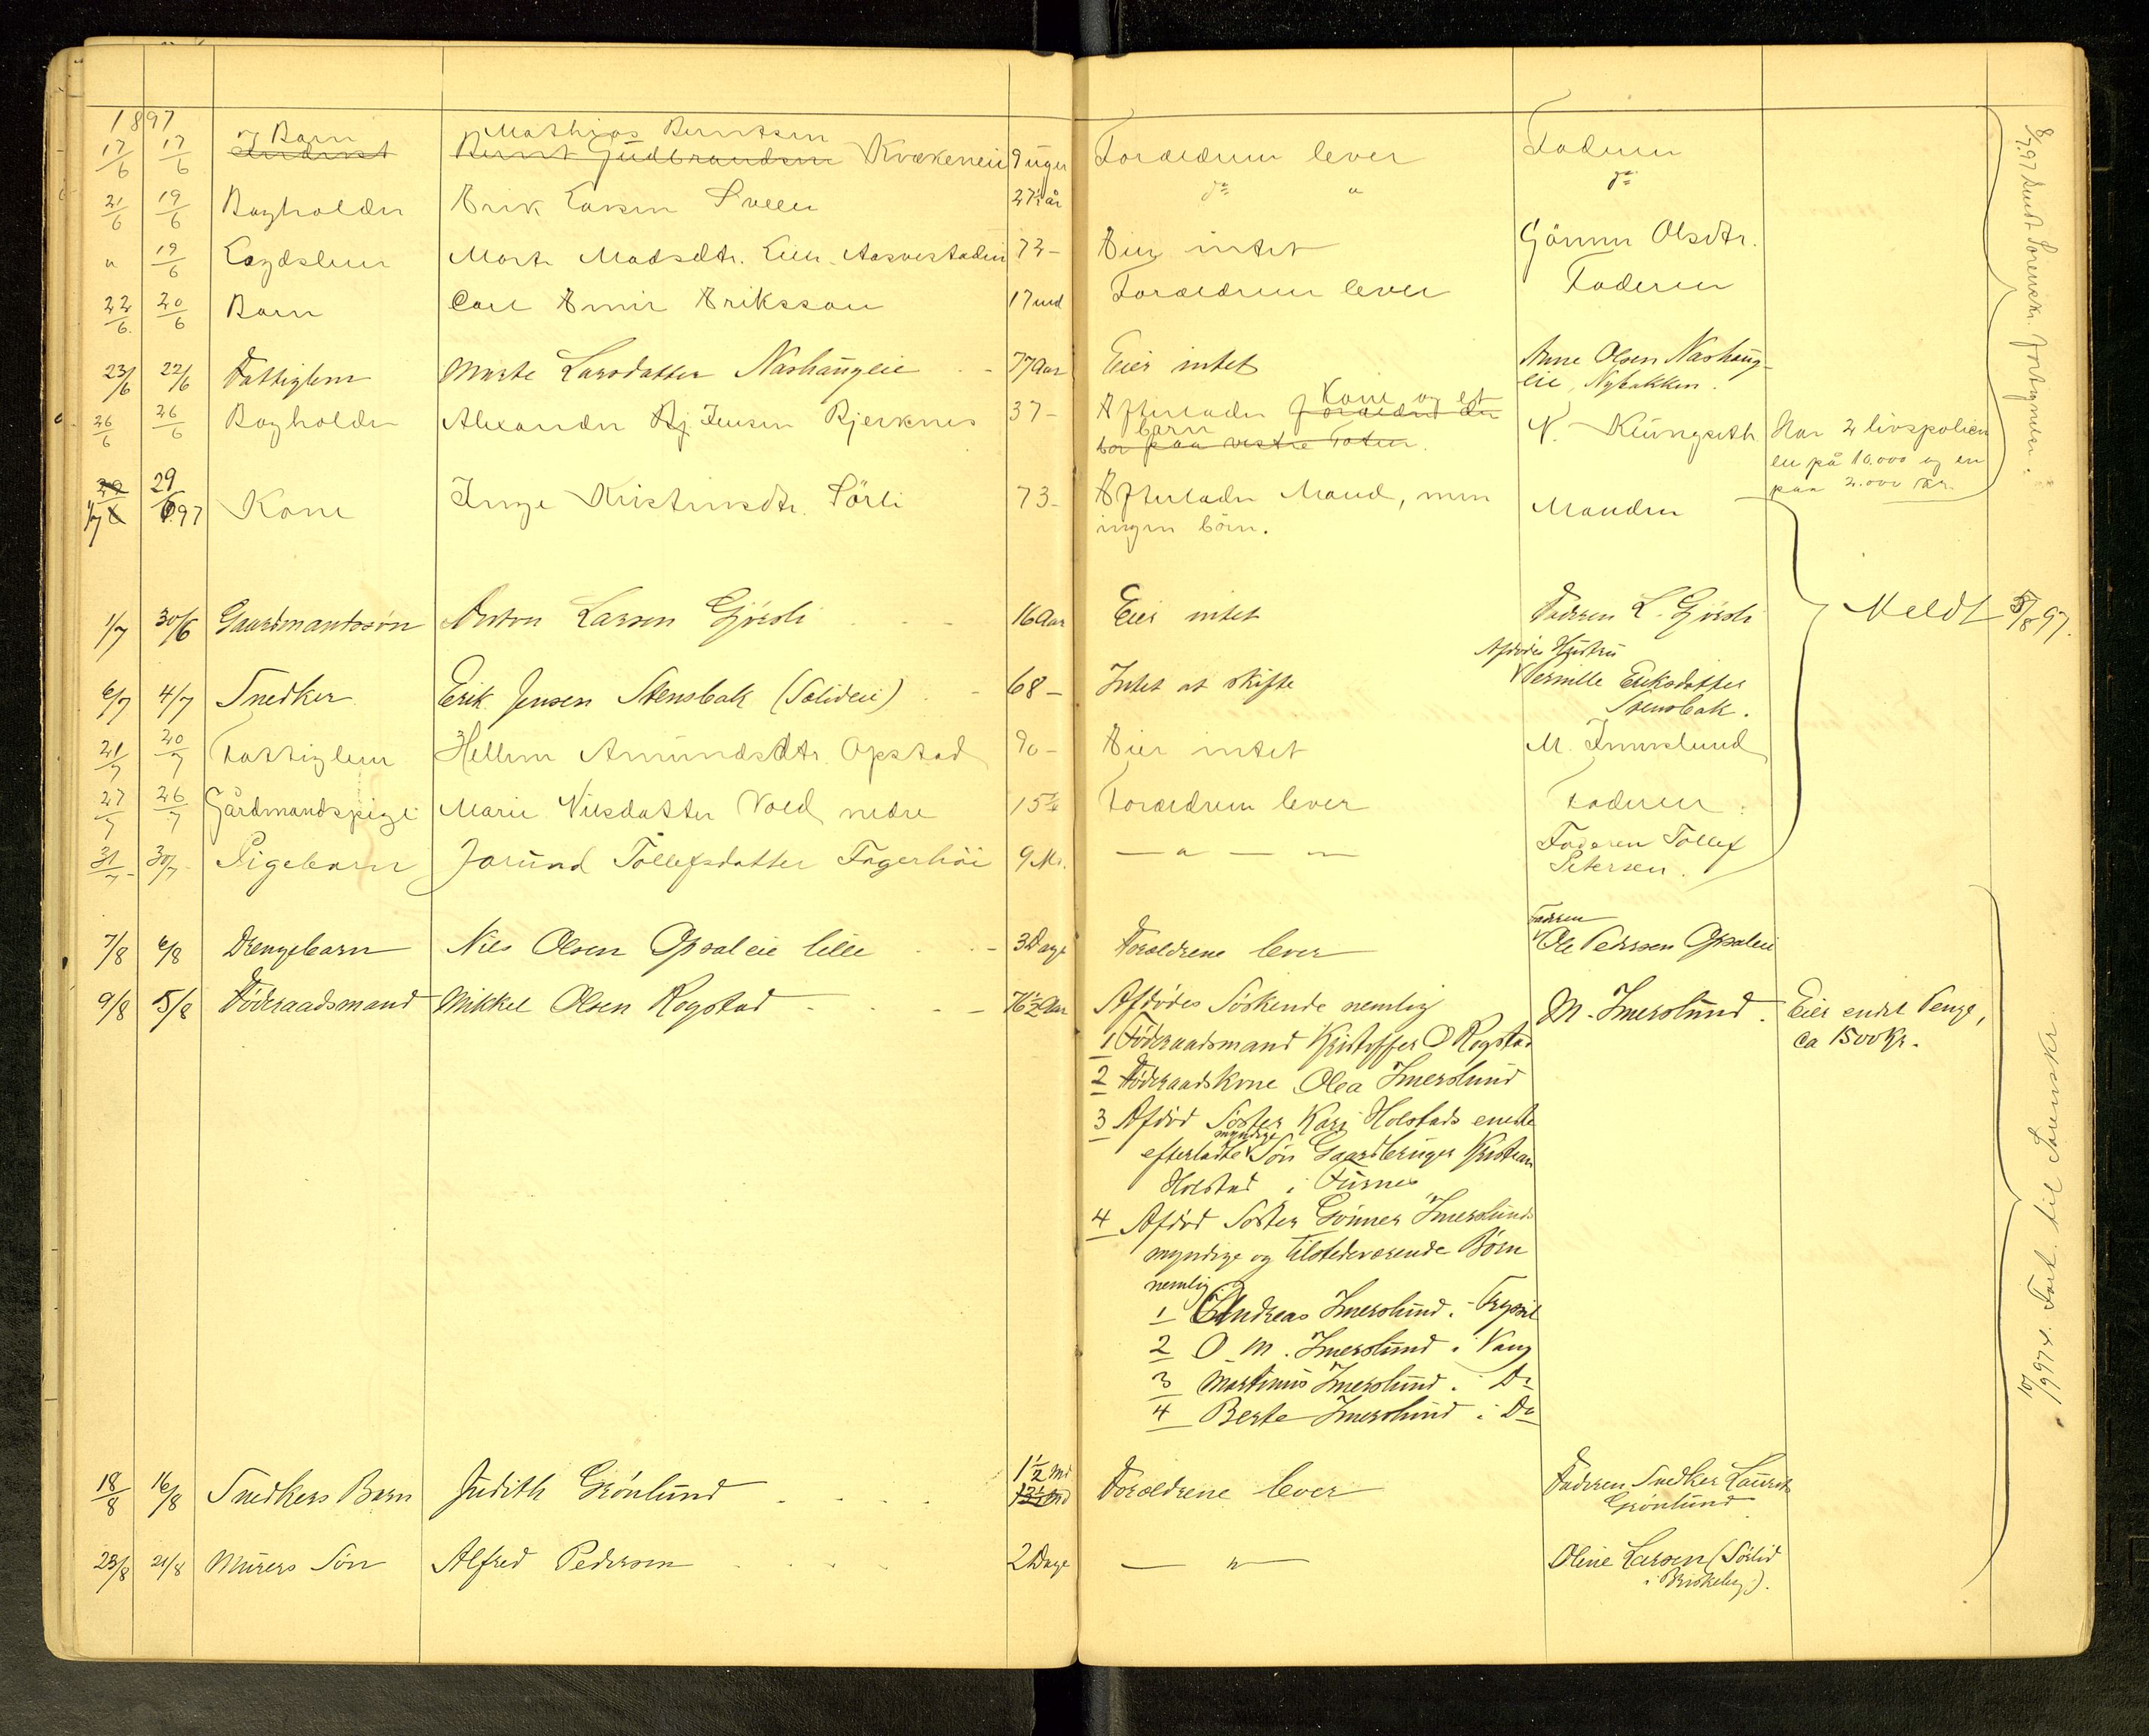 1897
17/6 17/6 Barn Mathias Berntsen Kvækeneie 9 uger Forældrene lever Faderen
21/6 19/6 Bogholder Erik Larsen 27½ år do " do
" 19/6 Lægdslem Marte Madsdtr. Aasvestadeie 73- Eier intet Gönner Olsdtr.
22/6 20/6 Barn Carl Emil Eriksson 17 md Forældrene lever Faderen
23/6 22/6 Fattiglem Marte Larsdatter Nashaugeie - - 77 Aar Eier intet Anne Olsen Nashaug-
eie, Nybakken.
26/6 26/6 Bogholder Alexander Bj. Jensen Bjerknes 37- Efterlader Kone og et
barn N. Klüngseth Har 2 livspolicer
en på 10.000 og en
paa 2.000 Kr.
1/7 29/6 97 Kone Inge Kristensdtr. Sörli 73- Efterlader Mand, men
ingen börn. Manden
1/7 30/6 Gaardmandssøn Anton Larsen Gjörsli - - - 16 Aar Eier intet Faderen L. Gjörsli
Meldt 5/8 97.
6/7 4/7 Snedker Erik Jensen Stensbak (Solideie) - 68- Intet at skifte Afdödes Hustru
Pernille Eriksdatter
Stensbak.
21/7 20/7 Fattiglem Hellene Amundsdtr. Opstad 90- Eier intet M. Imerslund
27/7 26/7 Gårdmandspige Marie Nilsdatter Vold nedre 15¾ Forældrene lever Faderen.
31/7 30/7 Pigebarn Jorund Tollefsdatter Fagerhöi 9 M. — " — " — Faderen Tollef
Petersen.
7/8 6/8 Drengebarn Nils Olsen Opsal eie lille - - 3 Dage Forældrene lever Faderen
Ole Pedersen Opsaleie
9/8 5/8 Föderaadsmand Mikkel Olsen Rogstad - - - - 76½ Aar Afdödes Söskende nemlig M. Imerslund. Eier endel Penge,
ca 1500 Kr.
1 Föderaadsmand Kristoffer O Rogstad
2 Föderaadskone Olea Imerslund
3 Afdöd Söster Kari Holstads eneste
efterladte myndige Sön Gaardbruger Kristian
Holstad i Furnes
4 Afdöd Söster Gönner Imerslunds
myndige og tilstedeværende Börn
nemlig
1 Andreas Imerslund i Trysil
2 O M. Imerslund i Vang
3 Martinus Imerslund i Do
4 Berte Imerslund i Do
18/8 16/8 Snedkers Barn Judith Grönlund - - - - 1½ Md Forældrene lever Faderen Snedker Laurits
Grönlund
23/8 21/8 Murers Sön Alfred Pedersen - - - - 2 Dage — " — Oline Larsen (Sörlid
i Briskeby).
8/7 97 Sendt Sorenskr. fortegnelse.
10/9 97 Fort. til Sorenskr.